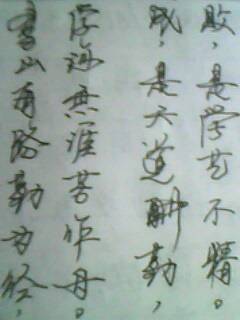 書山有路勤为径，
学海無涯苦作舟。
成，是天道酬勤，
败，是学艺不精。